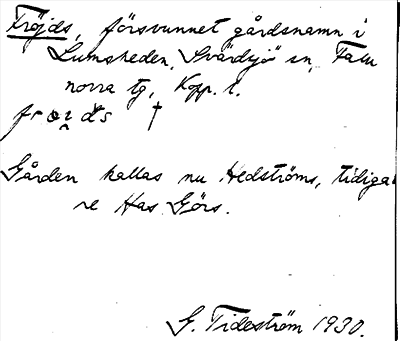 Fröjds, försvunnet gårdsnamn i
Lumsheden, Svärdsjö sn, Falu
norra tg, Kopp. l.
frøi̯ds †
Gården kallas nu Hedströms, tidiga
re Has Görs.
G. Tideström 1930.